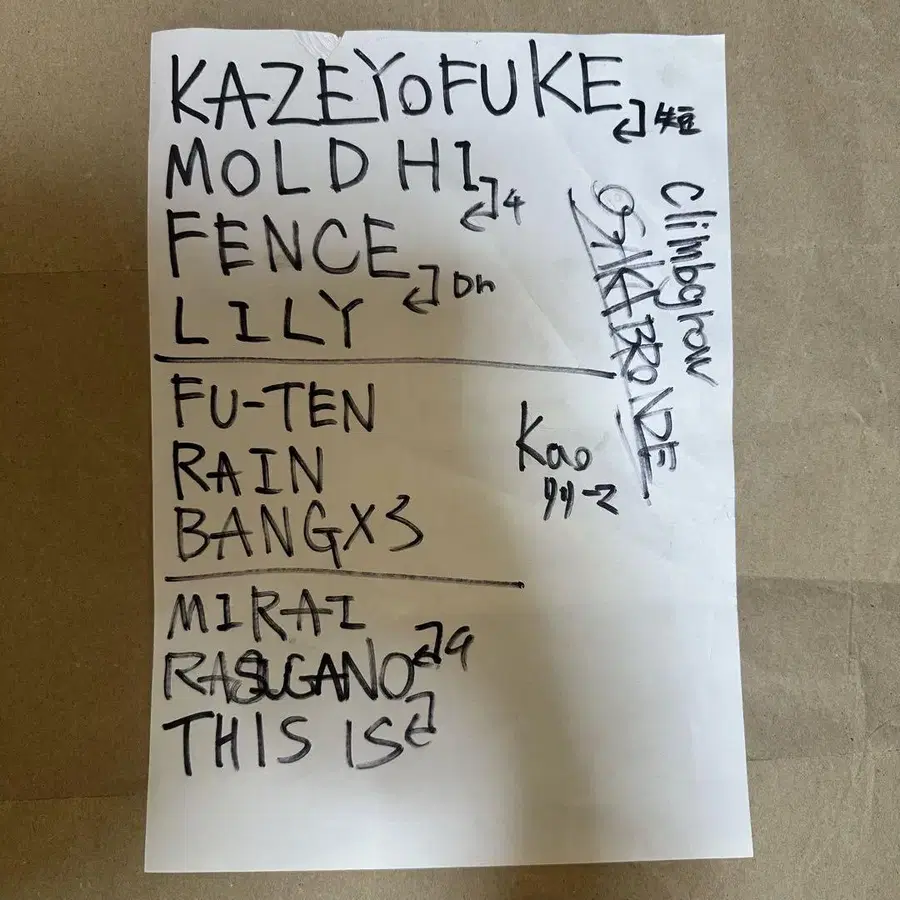 KAZEYOFUKE
短
MOLD HI
4
FENCE
Dr
LILY
FU-TEN
RAIN
BANG×3
MIRAI
4
RASUGANO
THIS IS
climbgrow
OSAKABRONZE
Kao
リリース